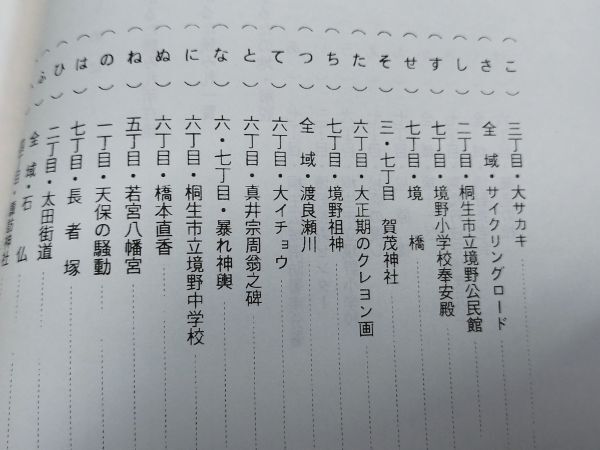 （こ）三丁目・大サカキ
（さ）全　域・サイクリングロード
（し）二丁目・桐生市立境野公民館
（す）七丁目・境野小学校奉安殿
（せ）七丁目・境　橋
（そ）三・七丁目　賀茂神社
（た）六丁目・大正期のクレヨン画
（ち）七丁目・境野祖神
（つ）全　域・渡良瀬川
（て）六丁目・大イチョウ
（と）六丁目・真井宗周翁之碑
（な）六・七丁目・暴れ神輿
（に）六丁目・桐生市立境野中学校
（ぬ）六丁目・橋本直香
（ね）五丁目・若宮八幡宮
（の）一丁目・天保の騒動
（は）七丁目・長者塚
（ひ）二丁目・太田街道
（ふ）全　域・石　仏